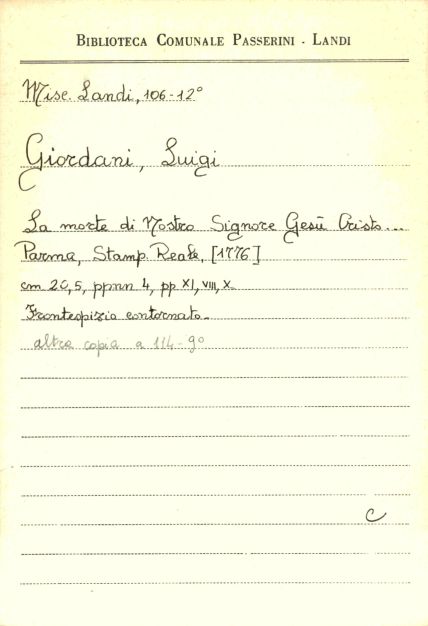 BIBLIOTECA COMUNALE PASSERINI - LANDI
Misc. Landi, 106-12°
Giordani, Luigi
La morte di Nostro Signore Gesù Cristo...
Parma, Stamp. Reale, [1776]
cm 20,5, ppnn 4, pp XI, VIII, X
Frontespizio contornato.
altra copia a 114-9°
C